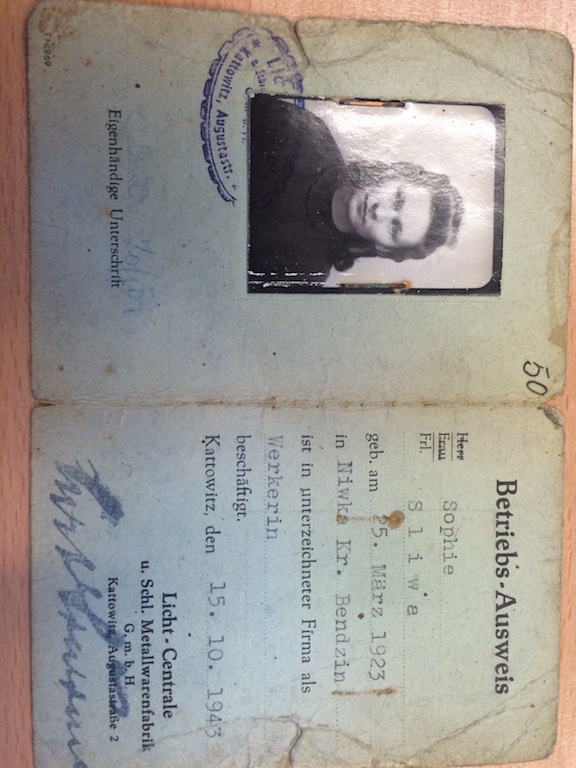 Kattowitz, Augustastr.
Eigenhändige Unterschrift
T/2969
50
Betriebs-Ausweis
Herr
Frau Sophie
Frl. Sliwa
geb. am 25. März 1923
in Niwka Kr. Bendzin
ist in unterzeichneter Firma als
Werkerin
beschäftigt.
Kattowitz, den 15. 10. 1943
Licht-Centrale
u. Schl. Metallwarenfabrik
G. m. b. H.
Kattowitz, Augustastraße 2